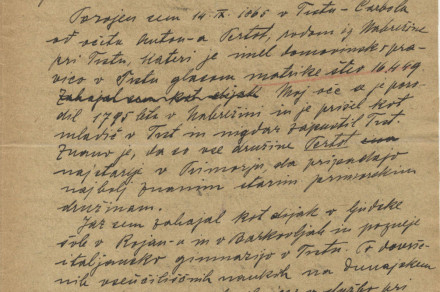 Porojen sem 14. IX. 1865 v Trstu-
od očeta Anton-a Pertot, rodom iz Nabrežine
pri Trstu, kateri je imel domovinsko pra-
vico v Trstu glasom matrike štev 16.449
Zahajal sem kot dijak Moj oče se je poro-
dil 1795 leta v Nabrežini in je prišel kot
mladič v Trst in nigdar zapustil Trst
Znano je, da so vse družine Pertot
najstareje v Primorju, da pripadajo
najbolj znanim starim primorskim
družinam.
Jaz sem zahajal kot dijak v ljudske
šole v Rojan-u in v Barkovljah in pozneje
italijansko gimnazijo v Trstu. Po dovrše-
nih vseučiliščnih naukih na dunajskem